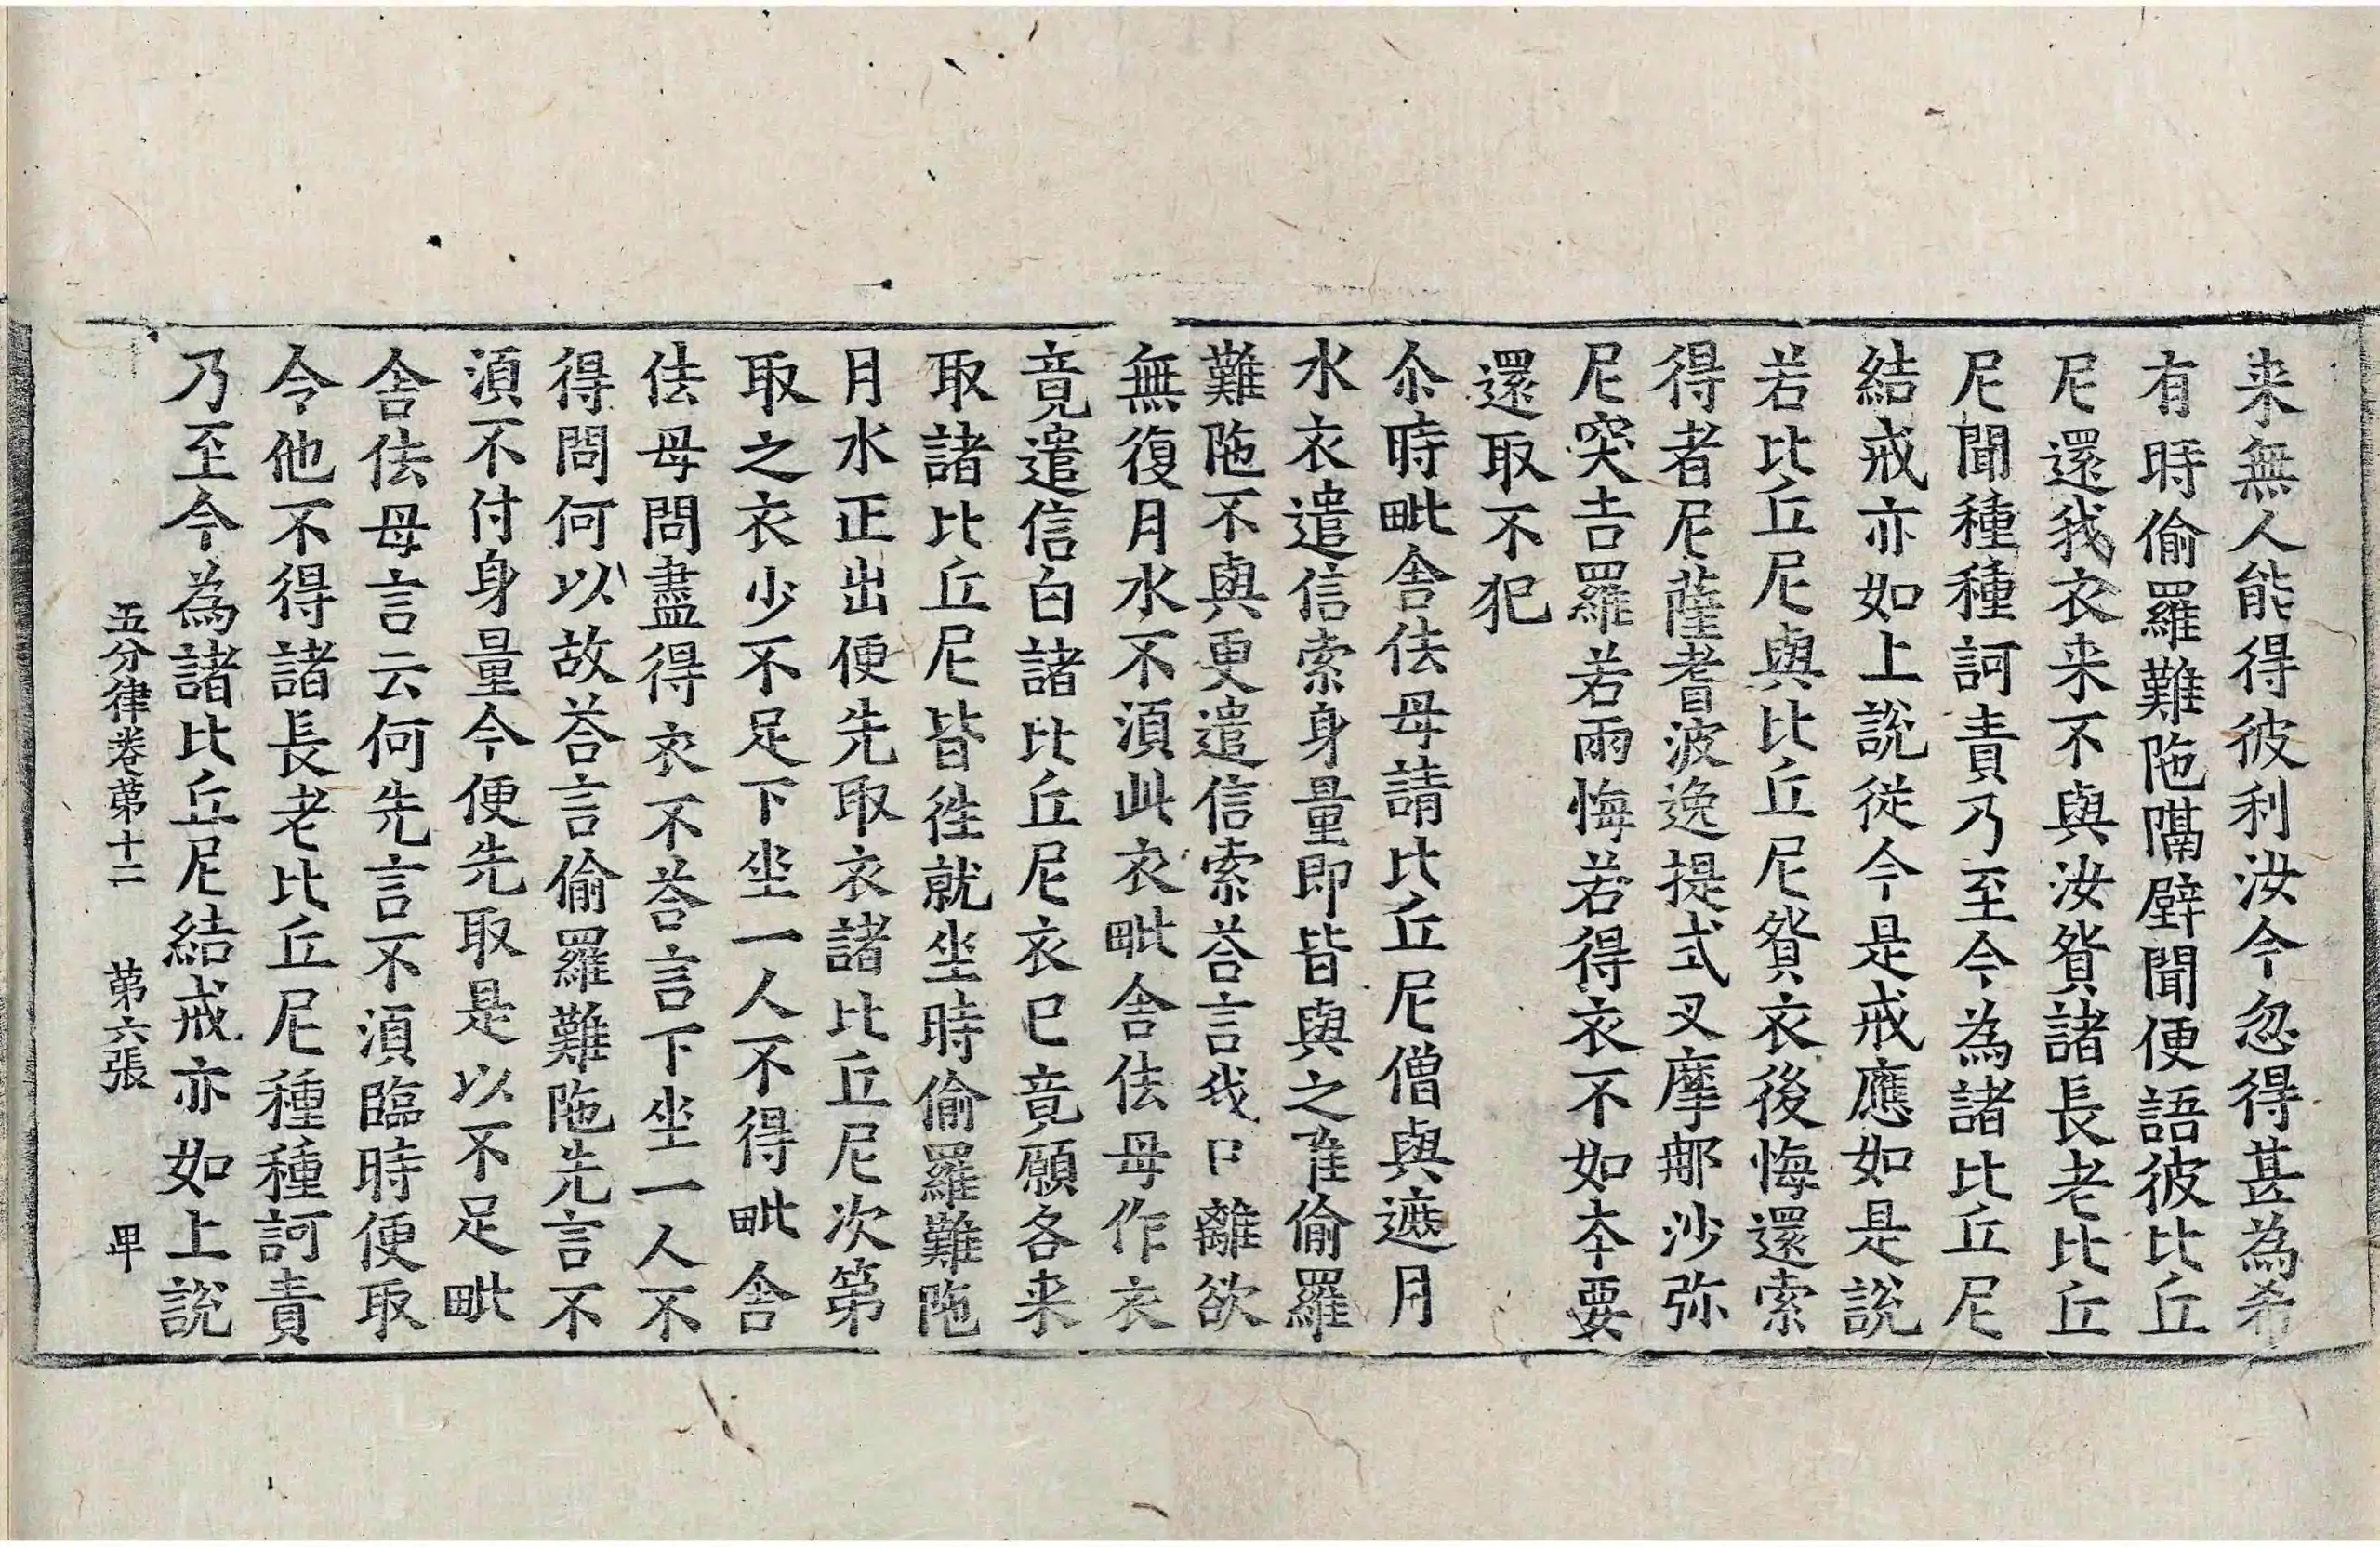 来無人能得彼利汝今忽得甚為希
有時偷羅難陁隔壁聞便語彼比丘
尼還我衣来不與汝貿諸長老比丘
尼聞種種訶責乃至今為諸比丘尼
結戒亦如上說從今是戒應如是說
若比丘尼與比丘尼貿衣後悔還索
得者尼薩耆波逸提式叉摩那沙弥
尼突吉羅若兩悔若得衣不如本要
還取不犯
尒時毗舍佉母請比丘尼僧與遮月
水衣遣信索身量即皆與之唯偷羅
難陁不與更遣信索荅言我已離欲
無復月水不湏此衣毗舍佉母作衣
竟遣信白諸比丘尼衣已竟願各来
取諸比丘尼皆徃就坐時偷羅難陁
月水正出便先取衣諸比丘尼次第
取之衣少不足下坐一人不得毗舍
佉母問盡得衣不荅言下坐一人不
得問何以故荅言偷羅難陁先言不
湏不付身量今便先取是以不足毗
舍佉母言云何先言不湏臨時便取
令他不得諸長老比丘尼種種訶責
乃至今為諸比丘尼結戒亦如上說
五分律卷苐十二 苐六張 甲